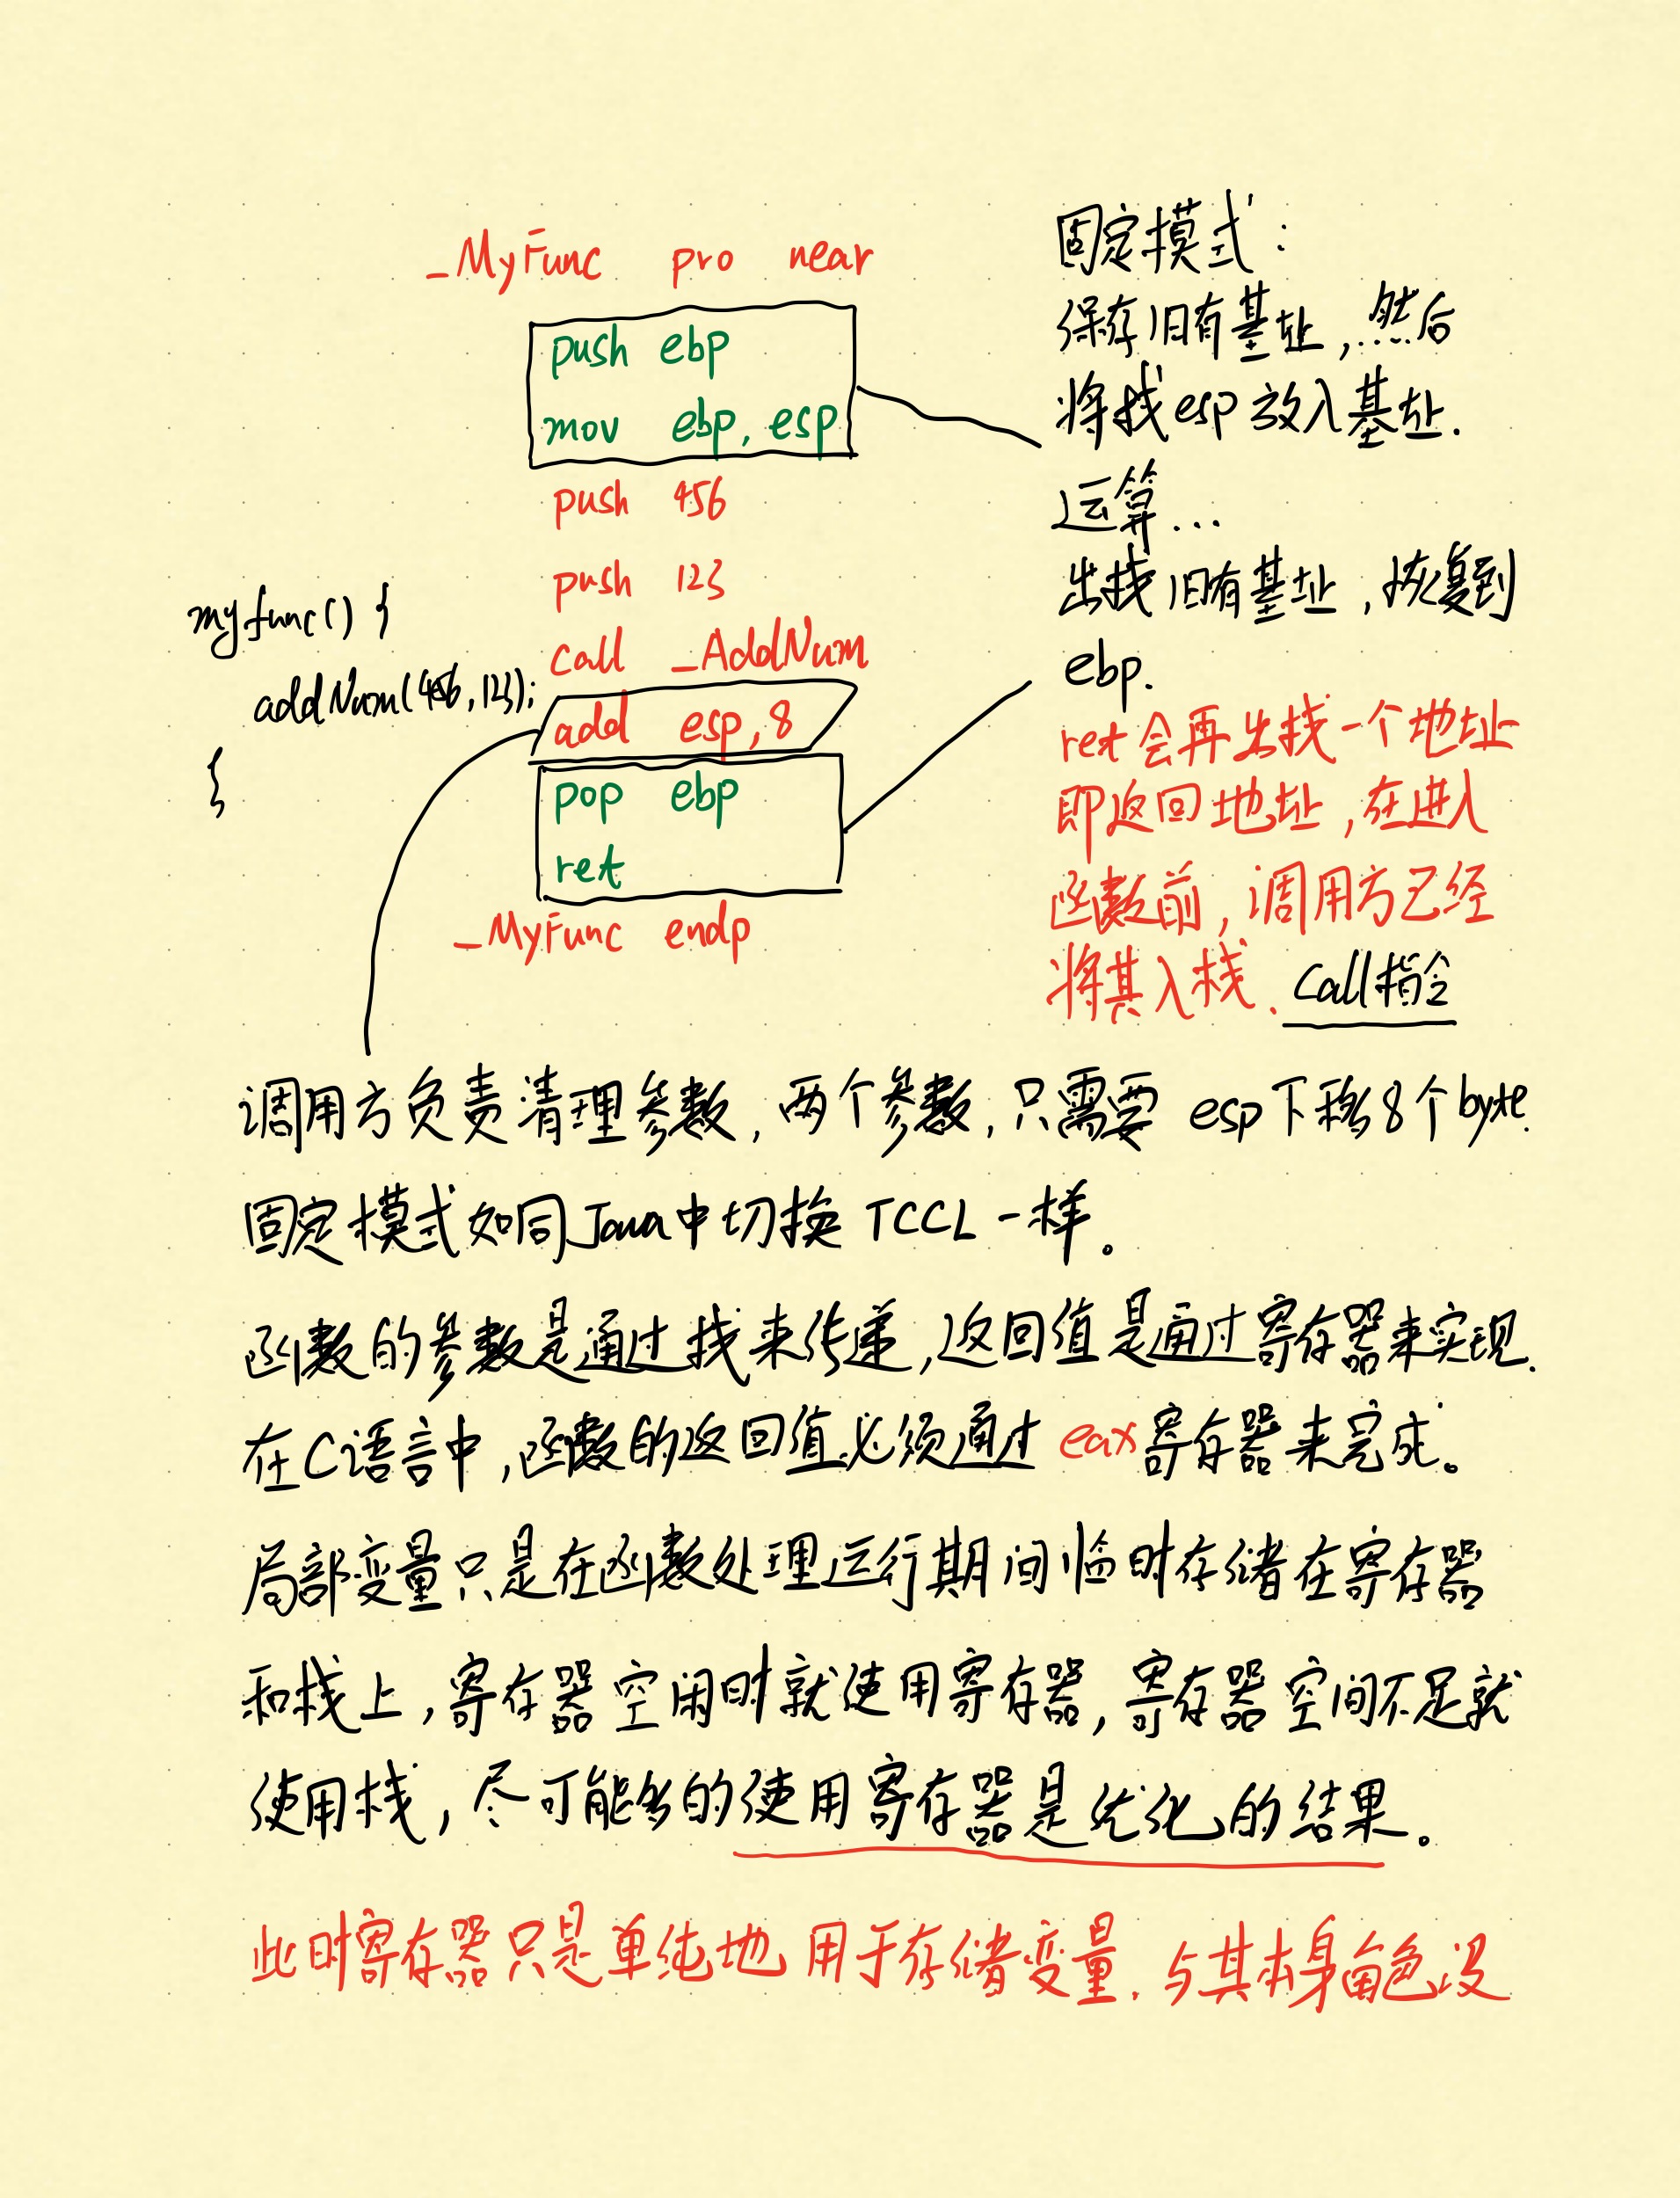 _MyFunc pro near
push ebp
mov ebp, esp
push 456
push 123
call _AddNum
add esp, 8
pop ebp
ret
_MyFunc endp
myfunc() {
addNum(456,123);
}
固定模式:
保存旧有基址,然后
将栈esp放入基址.
运算...
出栈旧有基址,恢复到
ebp.
ret会再出栈一个地址
即返回地址,在进入
函数前,调用方已经
将其入栈. call指令
调用方负责清理参数,两个参数,只需要 esp下移8个byte.
固定模式如同Java中切换 TCCL 一样。
函数的参数是通过栈来传递,返回值是通过寄存器来实现.
在C语言中,函数的返回值必须通过 eax寄存器来完成。
局部变量只是在函数处理运行期间临时存储在寄存器
和栈上,寄存器空闲时就使用寄存器,寄存器空间不足就
使用栈,尽可能多的使用寄存器是优化的结果。
此时寄存器只是单纯地用于存储变量.与其本身角色没